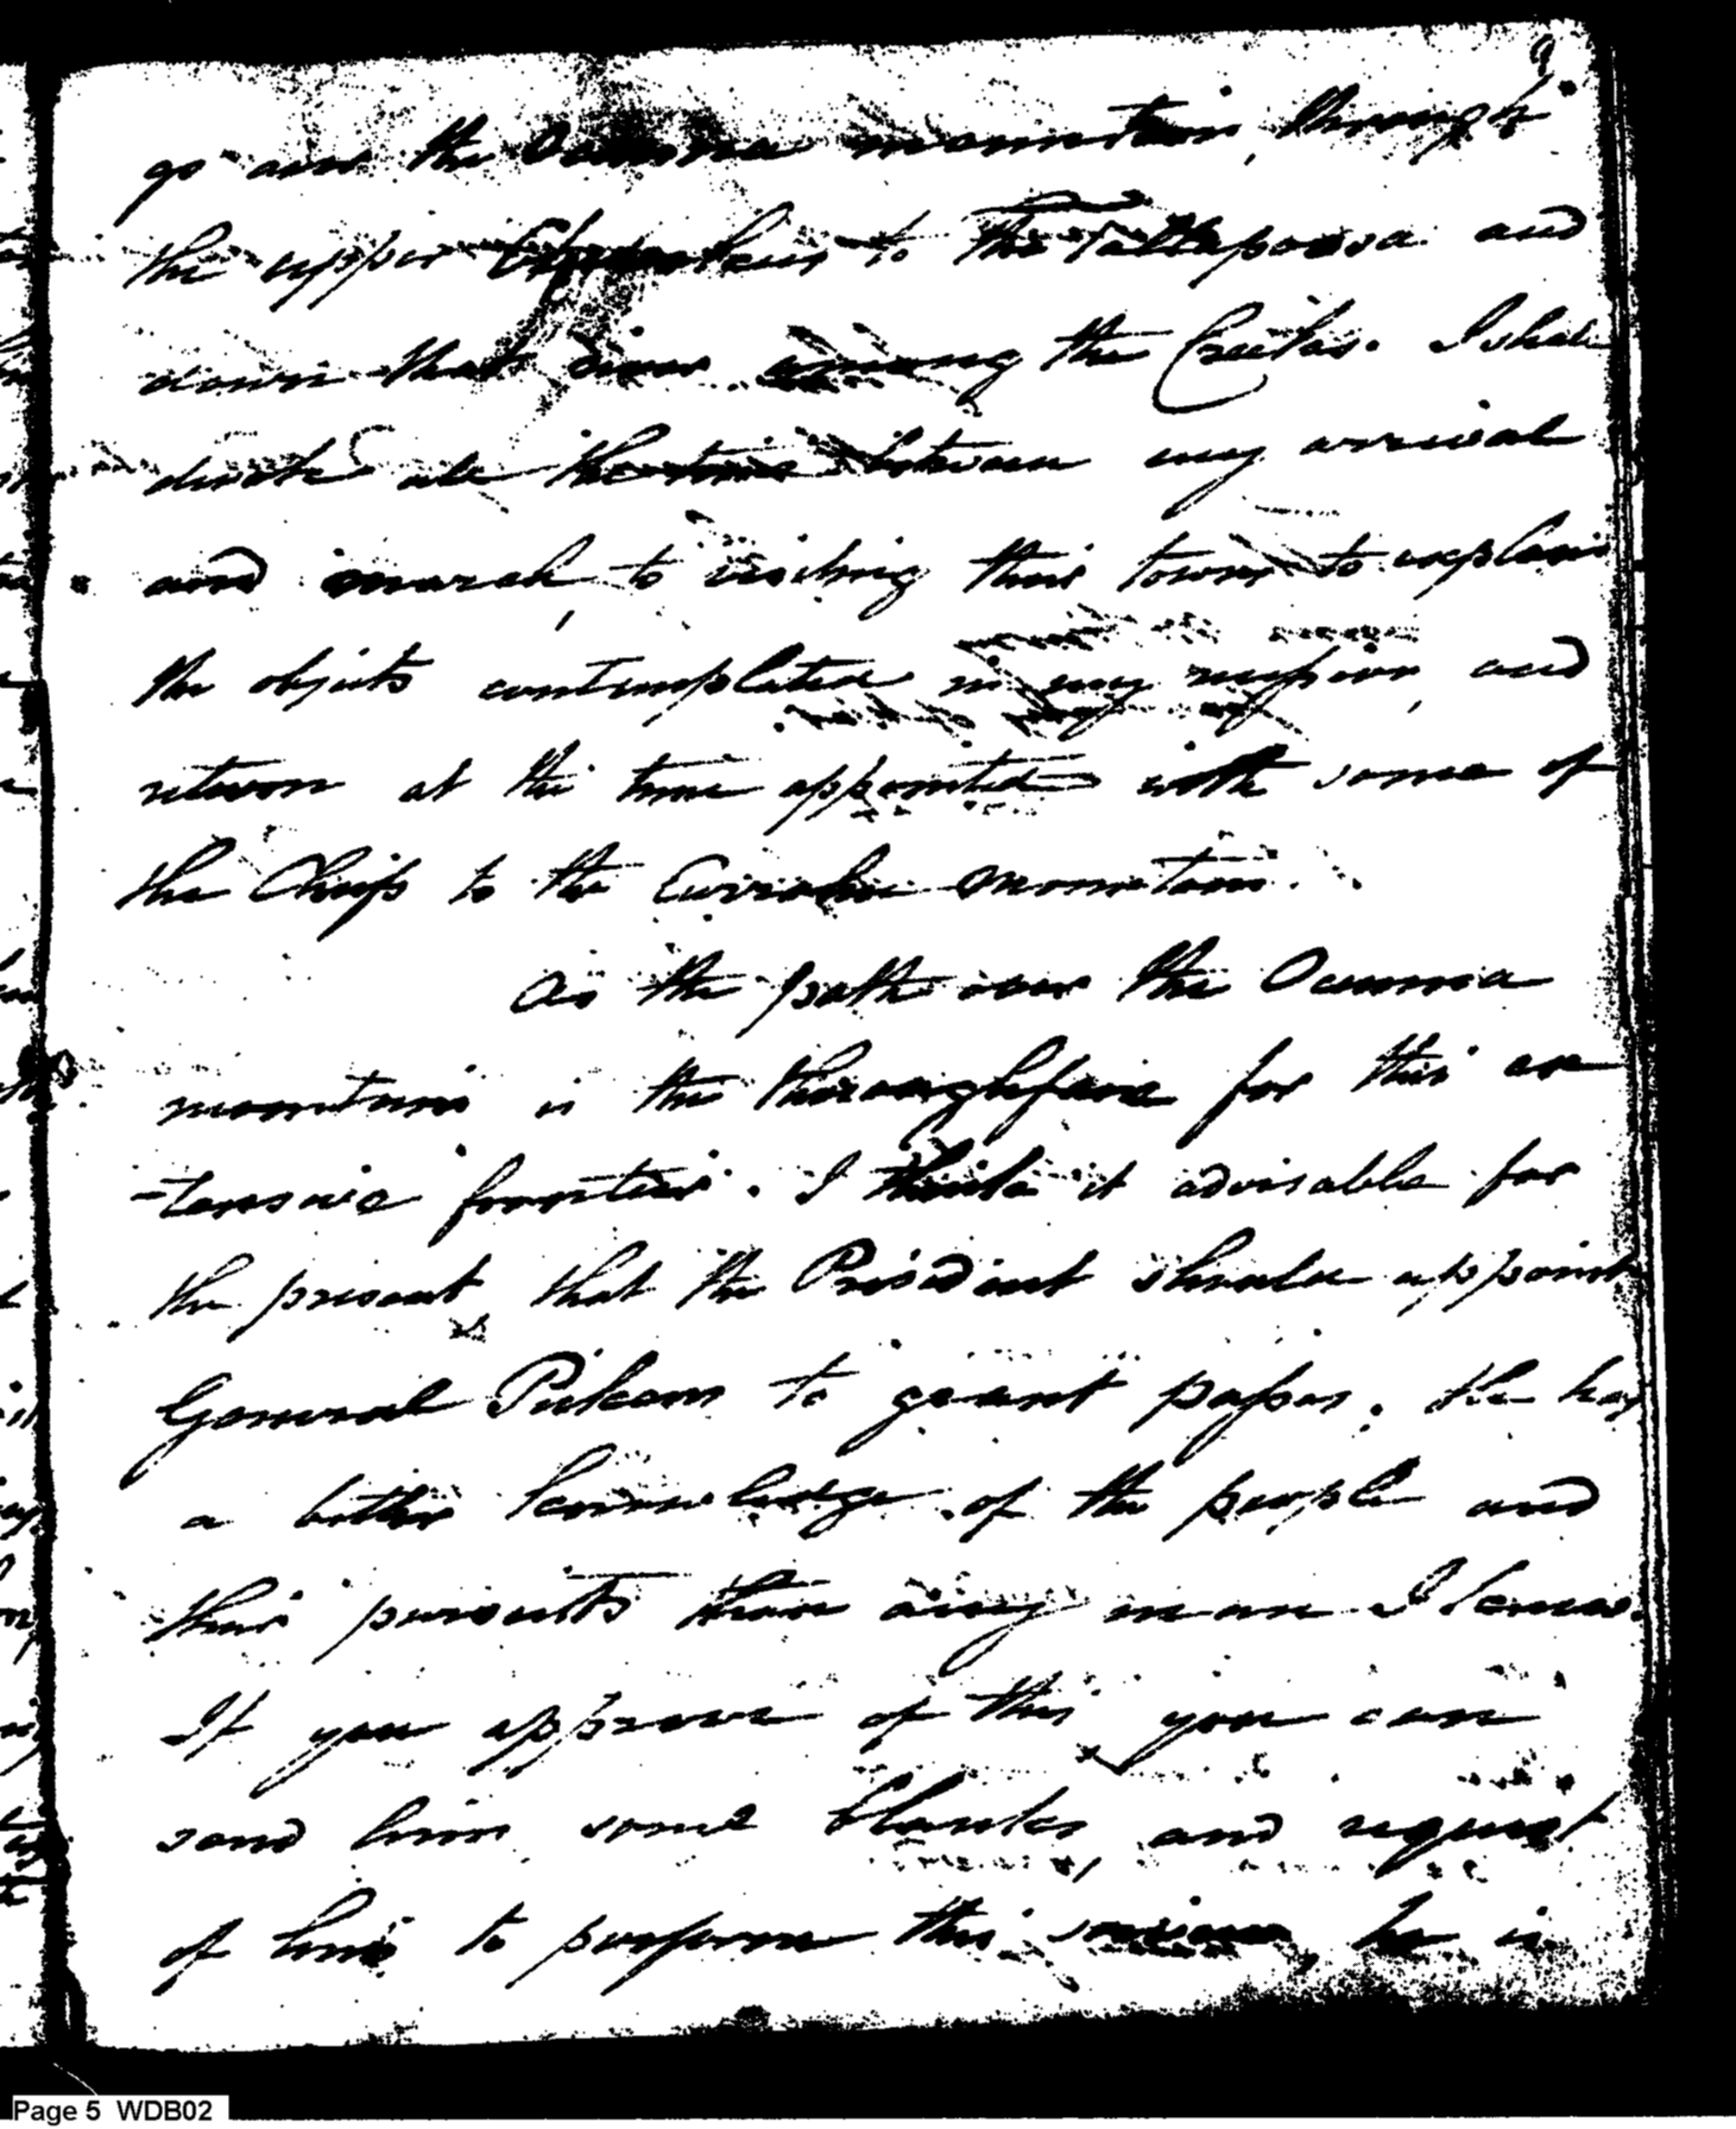 9
go over the Ocunna mountain, through
the upper Cherokees to the Tallapoosa and
down that river among the Creeks. I shall
devote all the time between my arrival
and march, to visiting their towns to explain
the objects contemplated in my mission, and
return at the time appointed with some of
the Chiefs to the Currahee mountain.
As the path over the Ocunna
mountain is the thoroughfare for this ex
-tensive frontier. I think it advisable for
the present, that the President should appoint
General Pickens to grant passes, he has
a better knowledge of the people and
their pursuits than any man I know.
If you approve of this you can
send him some blanks, and request
of him to perform this service, he is
Page 5 WDB02